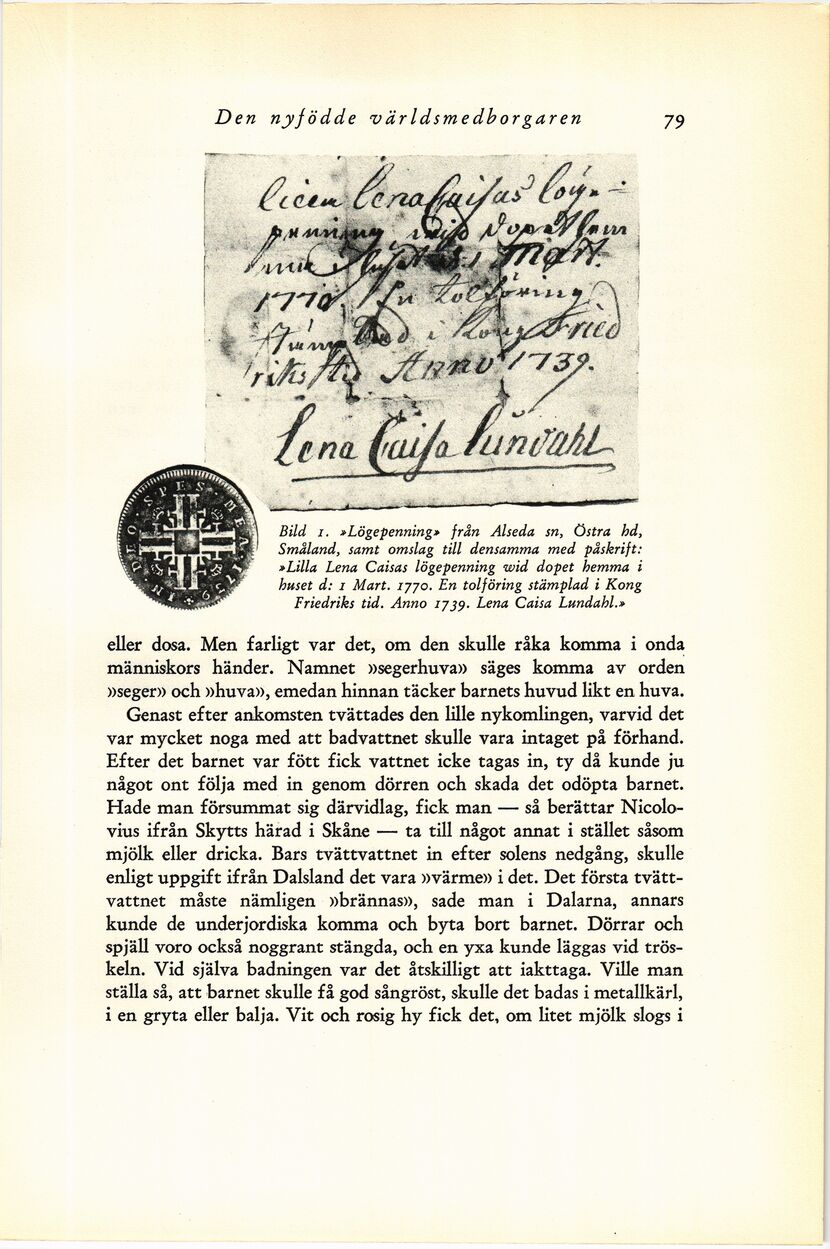 Den nyfödde världsmedborgaren 79
Lena Caisas
Mart.
1770. En tolföring
i Kong Fried
riks tid Anno 1739.
Lena Caisa Lundahl
IN · DEO · SPES · MEA · 1739
Bild 1. »Lögepenning» från Alseda sn, Östra hd,
Småland, samt omslag till densamma med påskrift:
»Lilla Lena Caisas lögepenning wid dopet hemma i
huset d: 1 Mart. 1770. En tolföring stämplad i Kong
Friedriks tid. Anno 1739. Lena Caisa Lundahl.»
eller dosa. Men farligt var det, om den skulle råka komma i onda
människors händer. Namnet »segerhuva» säges komma av orden
»seger» och »huva», emedan hinnan täcker barnets huvud likt en huva.
Genast efter ankomsten tvättades den lille nykomlingen, varvid det
var mycket noga med att badvattnet skulle vara intaget på förhand.
Efter det barnet var fött fick vattnet icke tagas in, ty då kunde ju
något ont följa med in genom dörren och skada det odöpta barnet.
Hade man försummat sig därvidlag, fick man — så berättar Nicolo-
vius ifrån Skytts härad i Skåne — ta till något annat i stället såsom
mjölk eller dricka. Bars tvättvattnet in efter solens nedgång, skulle
enligt uppgift ifrån Dalsland det vara »värme» i det. Det första tvätt-
vattnet måste nämligen »brännas», sade man i Dalarna, annars
kunde de underjordiska komma och byta bort barnet. Dörrar och
spjäll voro också noggrant stängda, och en yxa kunde läggas vid trös-
keln. Vid själva badningen var det åtskilligt att iakttaga. Ville man
ställa så, att barnet skulle få god sångröst, skulle det badas i metallkärl,
i en gryta eller balja. Vit och rosig hy fick det, om litet mjölk slogs i